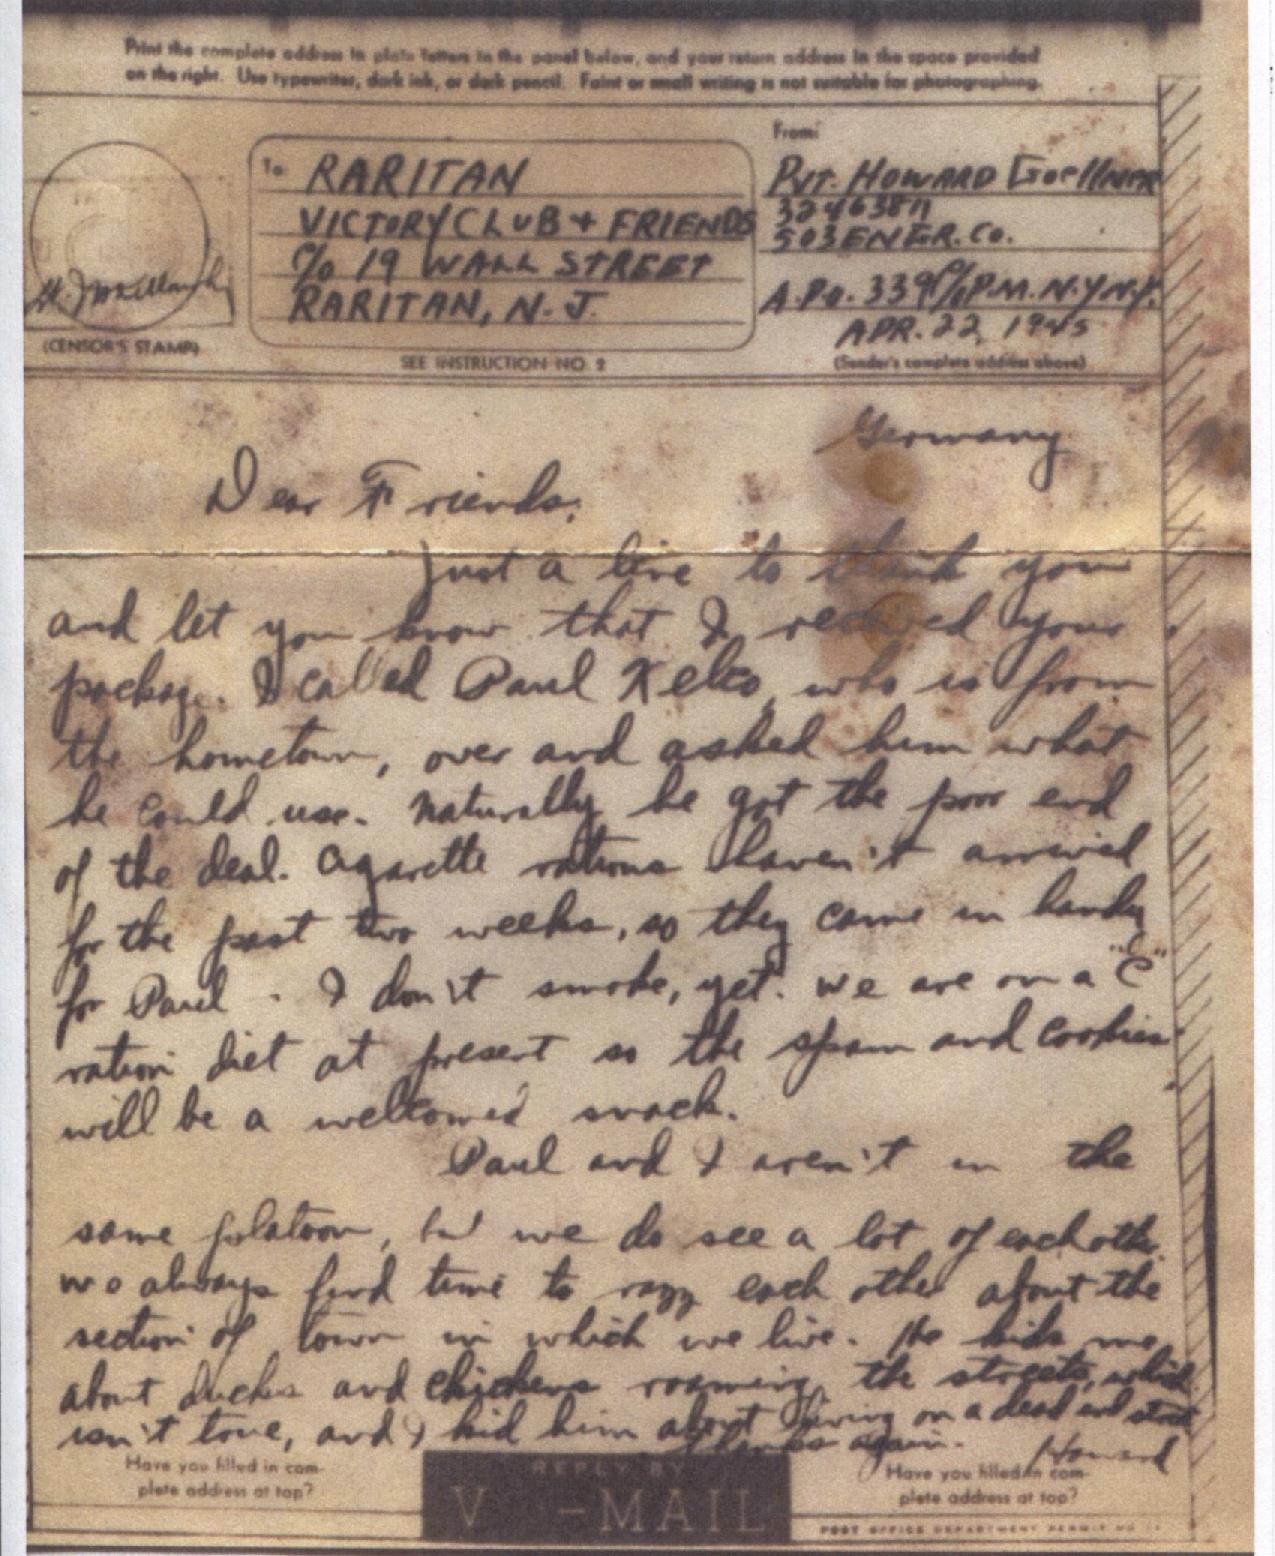 Print the complete address in plain letters in the panel below, and your return address in the space provided
on the right. Use typewriter, dark ink, or dark pencil. Faint or small writing is not suitable for photographing.
To
RARITAN
VICTORY CLUB + FRIENDS
c/o 19 WALL STREET
RARITAN, N.J.
From
PVT. HOWARD GOELLNER
503 ENGR. CO.
A.P.O. 339 c/o P.M. N.Y N.Y.
APR. 22, 1945
(CENSOR'S STAMP)
SEE INSTRUCTION NO. 2
(Sender's complete address above)
Germany
Dear Friends,
Just a line to thank you
and let you know that I received your
package. I called Paul Kelco, who is from
the hometown, over and asked him what
he could use. Naturally he got the poor end
of the deal. Cigarette rations haven't arrived
for the past two weeks, so they came in handy
for Paul - I don't smoke, yet. We are on a "C"
ration diet at present so the spam and cookies
will be a welcomed snack.
Paul and I aren't in the
same platoon, but we do see a lot of each other.
We always find time to razz each other about the
section of town in which we live. He kids me
about ducks and chickens roaming the streets, which
isn't true, and I kid him about living on a dead end street
Thanks again. Howard
Have you filled in com-
plete address at top?
REPLY BY
V -MAIL
Have you filled in com-
plete address at top?
POST OFFICE DEPARTMENT PERMIT NO.